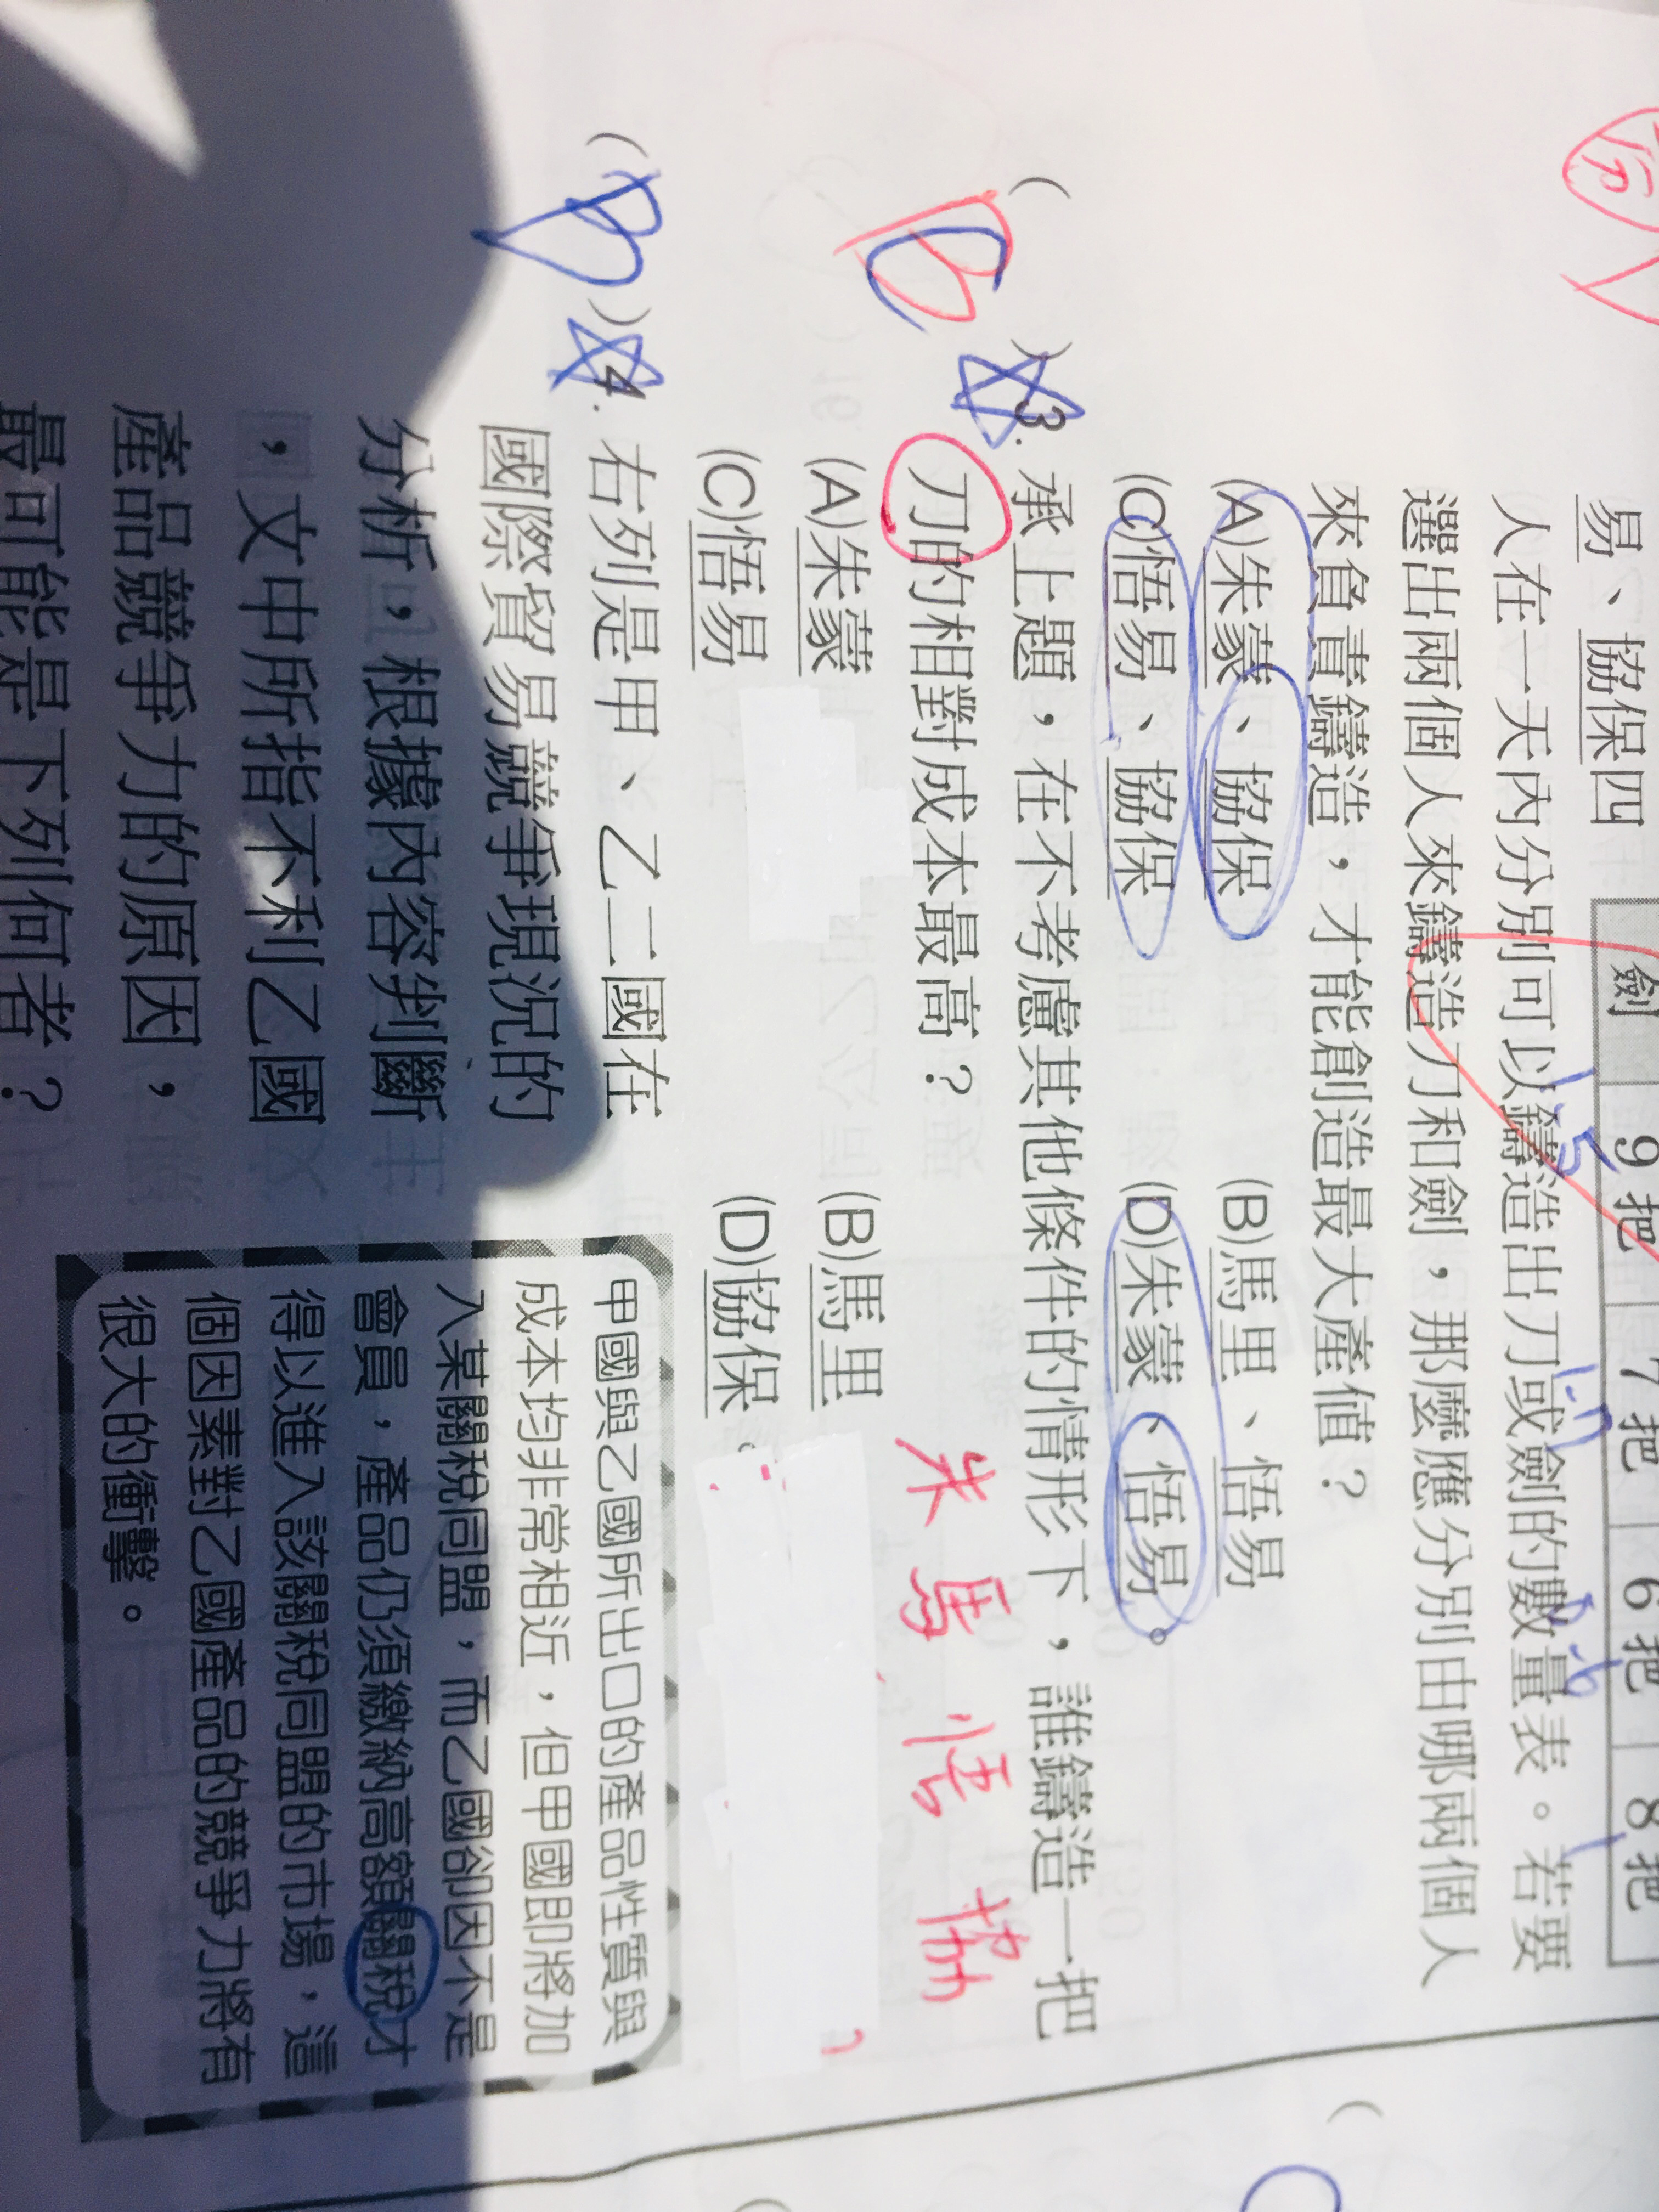 劍 9把 7把 6把 8把
易、協保四
人在一天內分別可以鑄造出刀或劍的數量表。若要
選出兩個人來鑄造刀和劍,那麼應分別由哪兩個人
來負責鑄造,才能創造最大產值?
(A)朱蒙、協保 (B)馬里、悟易
(C)悟易、協保 (D)朱蒙、悟易。
( B )3. 承上題,在不考慮其他條件的情形下,誰鑄造一把
刀的相對成本最高?
朱 馬 悟 協
(A)朱蒙 (B)馬里
(C)悟易 (D)協保
( )4. 右列是甲、乙二國在
國際貿易競爭現況的
分析,根據內容判斷
,文中所指不利乙國
產品競爭力的原因,
最可能是下列何者?
甲國與乙國所出口的產品性質與
成本均非常相近,但甲國即將加
入某關稅同盟,而乙國卻因不是
會員,產品仍須繳納高額關稅才
得以進入該關稅同盟的市場,這
個因素對乙國產品的競爭力將有
很大的衝擊。